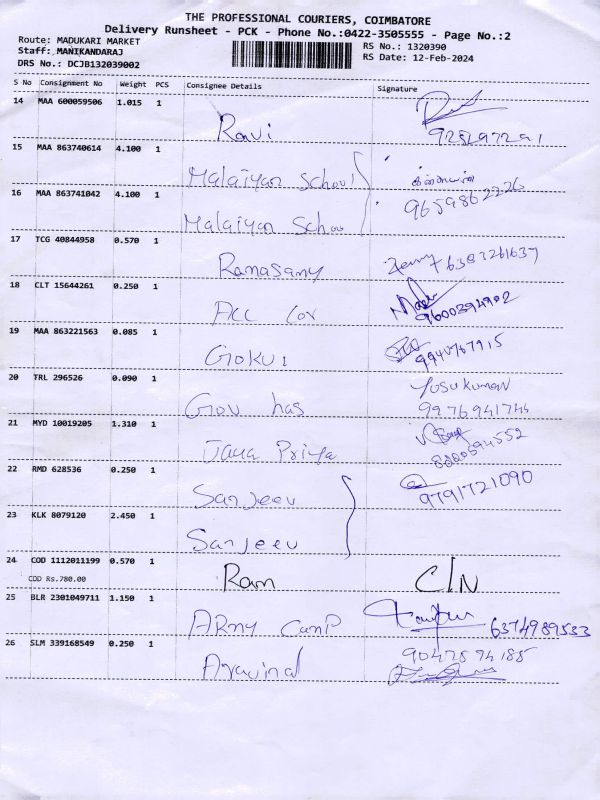 THE PROFESSIONAL COURIERS, COIMBATORE
Delivery Runsheet - PCK - Phone No.:0422-3505555 - Page No.:2
Route: MADUKARI MARKET
Staff: MANIKANDARAJ
DRS No.: DCJB132039002
RS No.: 1320390
RS Date: 12-Feb-2024
S No Consignment No Weight PCS Consignee Details Signature
14 MAA 600059506 1.015 1
Ravi
15 MAA 863740614 4.100 1
Malaiyan School
16 MAA 863741042 4.100 1 9659862226
Malaiyan Schoo
17 TCG 40844958 0.570 1
Ramasamy
18 CLT 15644261 0.250 1
Acc Cor 9600394902
19 MAA 863221563 0.085 1
Gokul
20 TRL 296526 0.090 1 Yusukumar
Gov has 9976941744
21 MYD 10019205 1.310 1
Jaya Priya
22 RMD 628536 0.250 1
Sanjeev 9791721090
23 KLK 8079120 2.450 1
Sanjeev
24 COD 1112011199 0.570 1
COD Rs.780.00
Ram C/N
25 BLR 2301049711 1.150 1
ARmy Camp 6374989533
26 SLM 339168549 0.250 1
Aravind